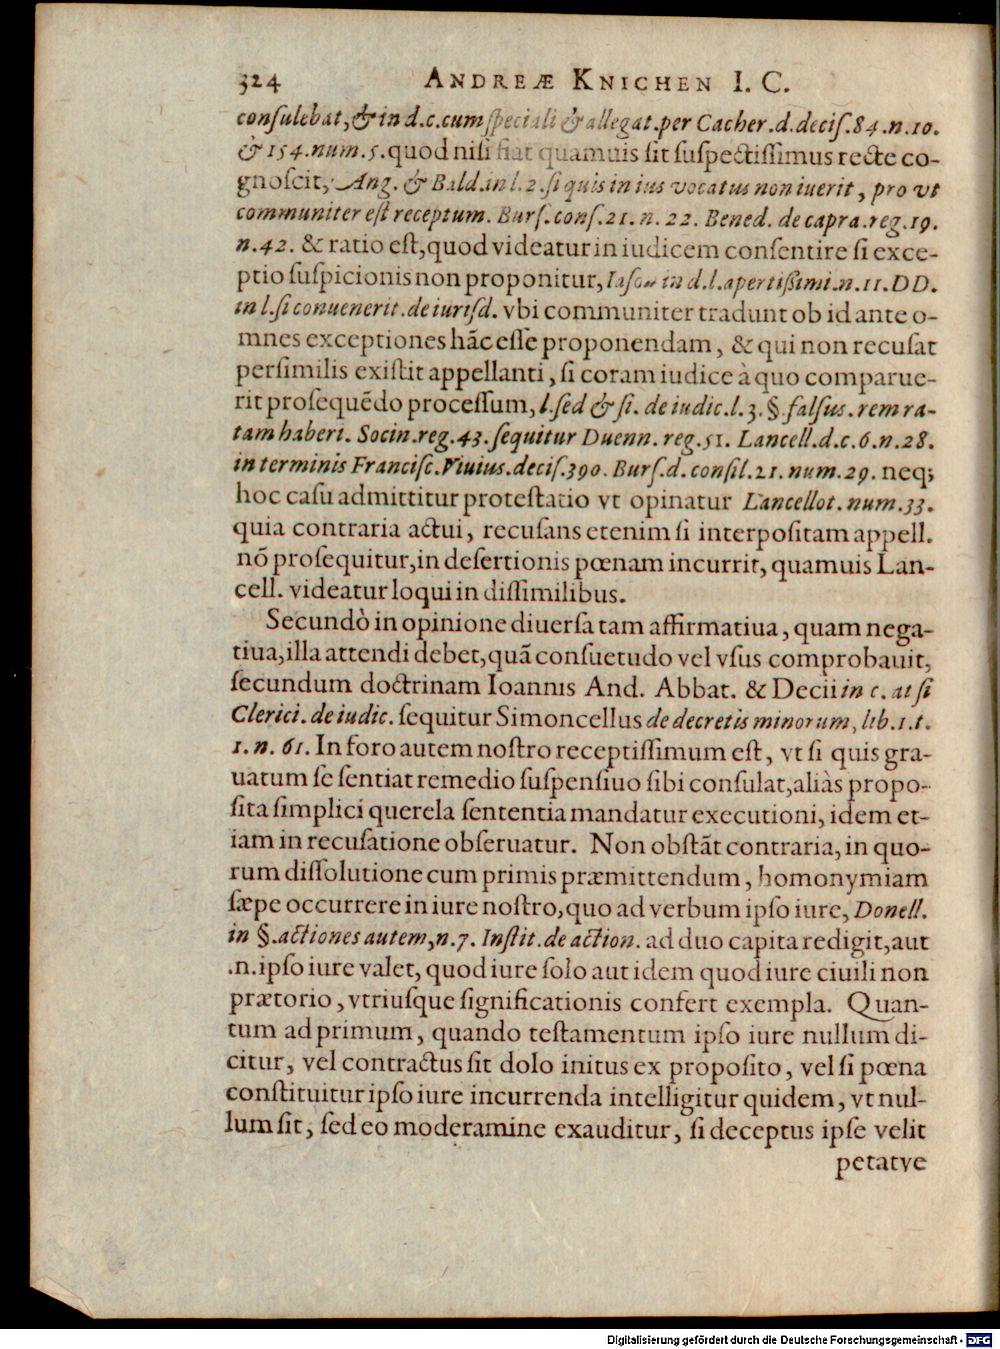 324 ANDREÆ KNICHEN I. C.
conſulebat, & in d. c. cum ſpeciali & allegat. per Cacher. d. deciſ. 84. n. 10.
& 154. num. 5. quod niſi fiat quamuis ſit ſuſpectiſſimus recte co-
gnoſcit, Ang. & Bald. in l. 2. ſi quis in ius vocatus non iuerit, pro vt
communiter eſt receptum. Burſ. conſ. 21. n. 22. Bened. de capra. reg. 19.
n. 42. & ratio eſt, quod videatur in iudicem conſentire ſi exce-
ptio ſuſpicionis non proponitur, Iaſon in d. l. apertißimi. n. 11. DD.
in l. ſi conuenerit. de iuriſd. vbi communiter tradunt ob id ante o-
mnes exceptiones hãc eſſe proponendam, & qui non recuſat
perſimilis exiſtit appellanti, ſi coram iudice à quo comparue-
rit proſequẽdo proceſſum, l. ſed & ſi. de iudic. l. 3. §. falſus. rem ra-
tam haberi. Socin. reg. 43. ſequitur Duenn. reg. 51. Lancell. d. c. 6. n. 28.
in terminis Franciſc. Viuius. deciſ. 390. Burſ. d. conſil. 21. num. 29. neq;
hoc caſu admittitur proteſtatio vt opinatur Lancellot. num. 33.
quia contraria actui, recuſans etenim ſi interpoſitam appell.
nõ proſequitur, in deſertionis pœnam incurrit, quamuis Lan-
cell. videatur loqui in diſſimilibus.
Secundò in opinione diuerſa tam affirmatiua, quam nega-
tiua, illa attendi debet, quã conſuetudo vel vſus comprobauit,
ſecundum doctrinam Ioannis And. Abbat. & Decii in c. at ſi
Clerici. de iudic. ſequitur Simoncellus de decretis minorum, lib. 1. t.
1. n. 61. In foro autem noſtro receptiſſimum eſt, vt ſi quis gra-
uatum ſe ſentiat remedio ſuſpenſiuo ſibi conſulat, aliàs propo-
ſita ſimplici querela ſententia mandatur executioni, idem et-
iam in recuſatione obſeruatur. Non obſtãt contraria, in quo-
rum diſſolutione cum primis præmittendum, homonymiam
ſæpe occurrere in iure noſtro, quo ad verbum ipſo iure, Donell.
in §. actiones autem, n. 7. Inſtit. de action. ad duo capita redigit, aut
.n. ipſo iure valet, quod iure ſolo aut idem quod iure ciuili non
prætorio, vtriuſque ſignificationis confert exempla. Quan-
tum ad primum, quando teſtamentum ipſo iure nullum di-
citur, vel contractus ſit dolo initus ex propoſito, vel ſi pœna
conſtituitur ipſo iure incurrenda intelligitur quidem, vt nul-
lum ſit, ſed eo moderamine exauditur, ſi deceptus ipſe velit
petatve
Digitalisierung gefördert durch die Deutsche Forschungsgemeinschaft - DFG